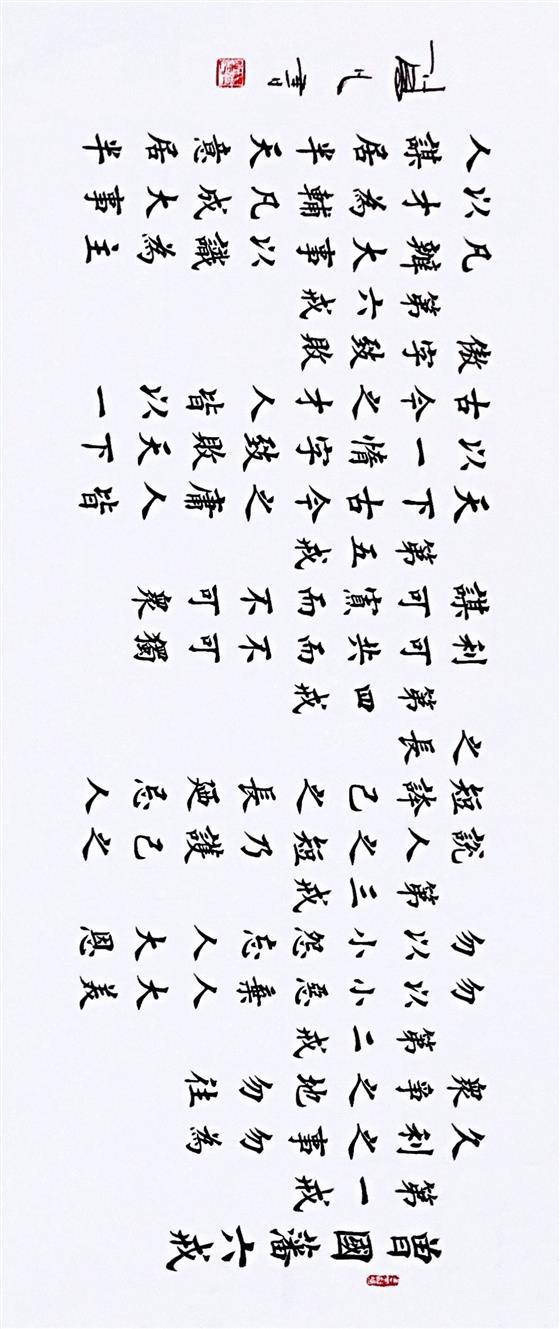 曾國藩六戒
第一戒
久利之事勿為
眾爭之地勿往
第二戒
勿以小惡棄人大美
勿以小怨忘人大恩
第三戒
說人之短乃護己之
短誇己之長廼忌人
之長
第四戒
利可共而不可獨
謀可寡而不可眾
第五戒
天下古今之庸人皆
以一惰字致敗天下
古今之才人皆以一
傲字致敗
第六戒
凡辦大事以識為主
以才為輔凡成大事
人謀居半天意居半
書